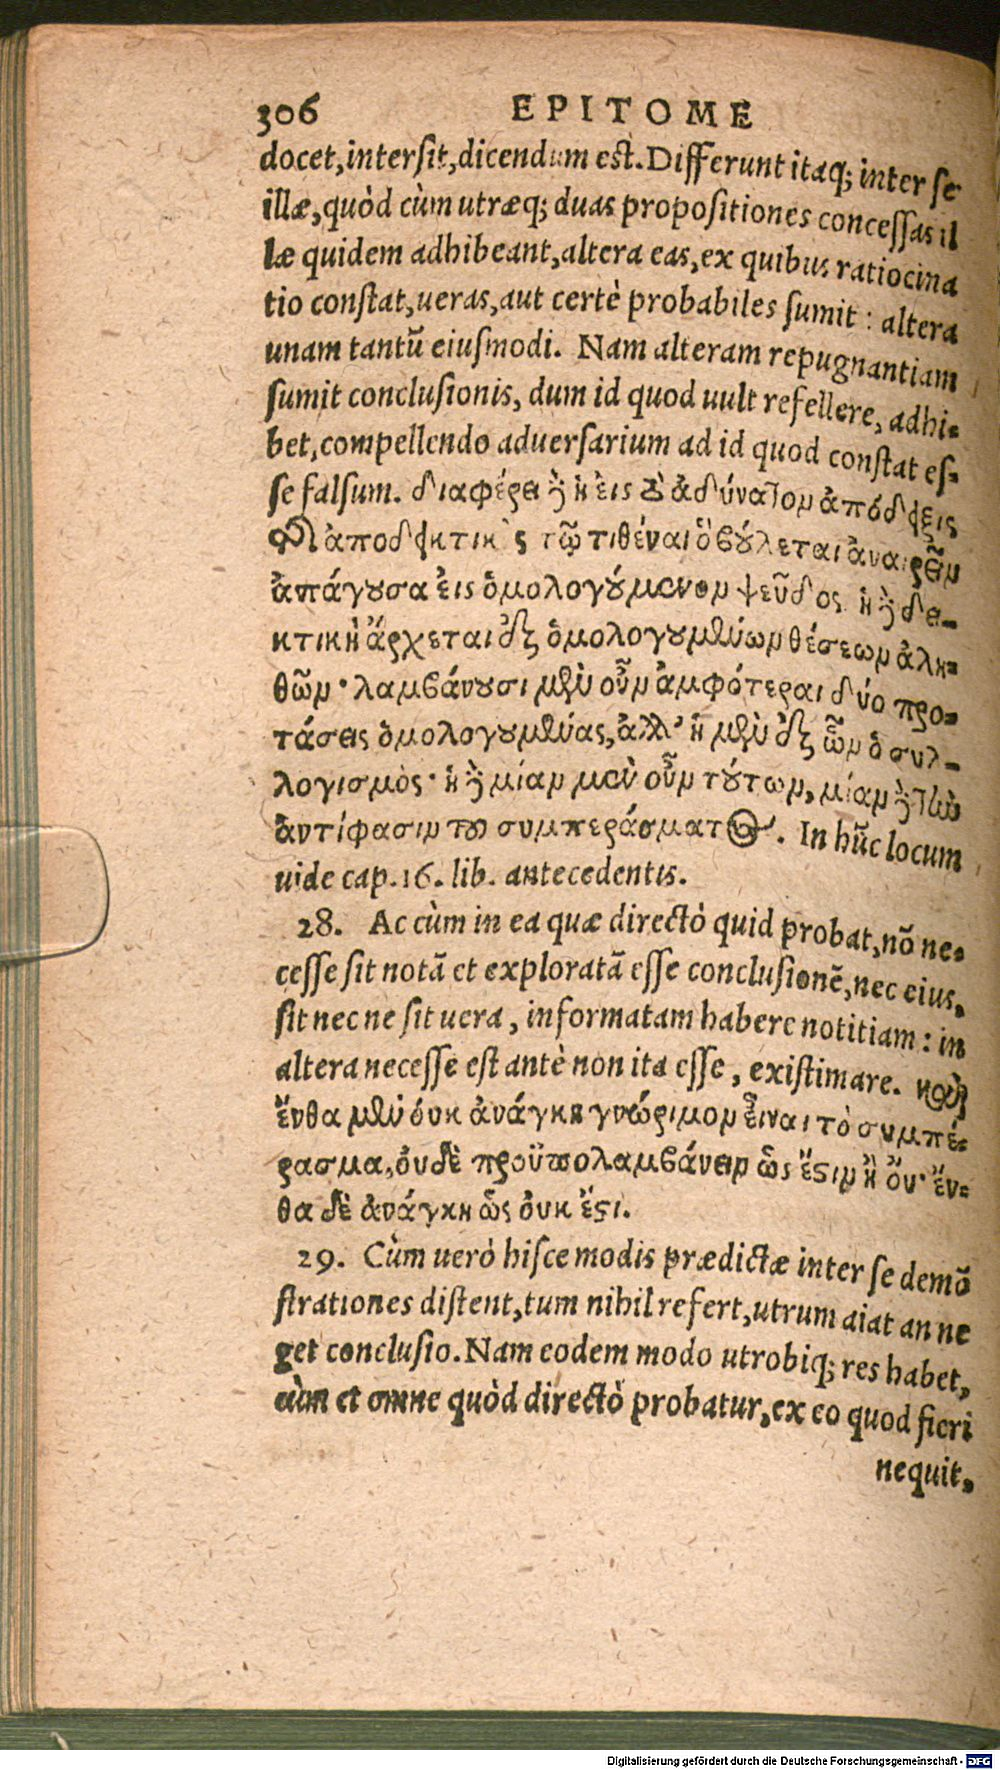 306 EPITOME
docet, intersit, dicendum est. Differunt itaq; inter se
illæ, quòd cùm utræq; duas propositiones concessas il
læ quidem adhibeant, altera eas, ex quibus ratiocina
tio constat, ueras, aut certè probabiles sumit: altera
unam tantũ eiusmodi. Nam alteram repugnantiam
sumit conclusionis, dum id quod uult refellere, adhi-
bet, compellendo aduersarium ad id quod constat es-
se falsum. διαφέρει ἢ ἡ εἰς τὸ ἀδύνατον ἀπόδειξις
τῆς ἀποδεικτικῆς τῷ τιθέναι ὃ βούλεται ἀναιρεῖν
ἀπάγουσα εἰς ὁμολογούμενον ψεῦδος ἡ ἢ δει-
κτικὴ ἄρχεται ἐξ ὁμολογουμένων θέσεων ἀλη-
θῶν· λαμβάνουσι μὲν οὖν ἀμφότεραι δύο προ-
τάσεις ὁμολογουμένας, ἀλλ’ ἡ μὲν ἐξ ὧν ὁ συλ-
λογισμὸς· ἡ ἢ μίαν μὲν οὖν τούτων, μίαν ἢ τὴν
ἀντίφασιν τοῦ συμπεράσματος. In hũc locum
uide cap. 16. lib. antecedentis.
28. Ac cùm in ea quæ directò quid probat, nõ ne-
cesse sit notã et exploratã esse conclusionẽ, nec eius,
sit nec ne sit uera, informatam habere notitiam: in
altera necesse est antè non ita esse, existimare. καὶ
ἔνθα μὲν ὀυκ ἀνάγκη γνώριμον εἶναι τὸ συμπέ-
ρασμα, ὀυδὲ προϋπολαμβάνειν ὡς ἔστιν ἢ ὄυ· ἔν-
θα δὲ ἀνάγκη ὡς ὀυκ ἔστι.
29. Cùm uerò hisce modis prædictæ inter se demõ
strationes distent, tum nihil refert, utrum aiat an ne
get conclusio. Nam eodem modo utrobiq; res habet,
cùm et omne quòd directò probatur, ex eo quod fieri
nequit,
Digitalisierung gefördert durch die Deutsche Forschungsgemeinschaft - DFG